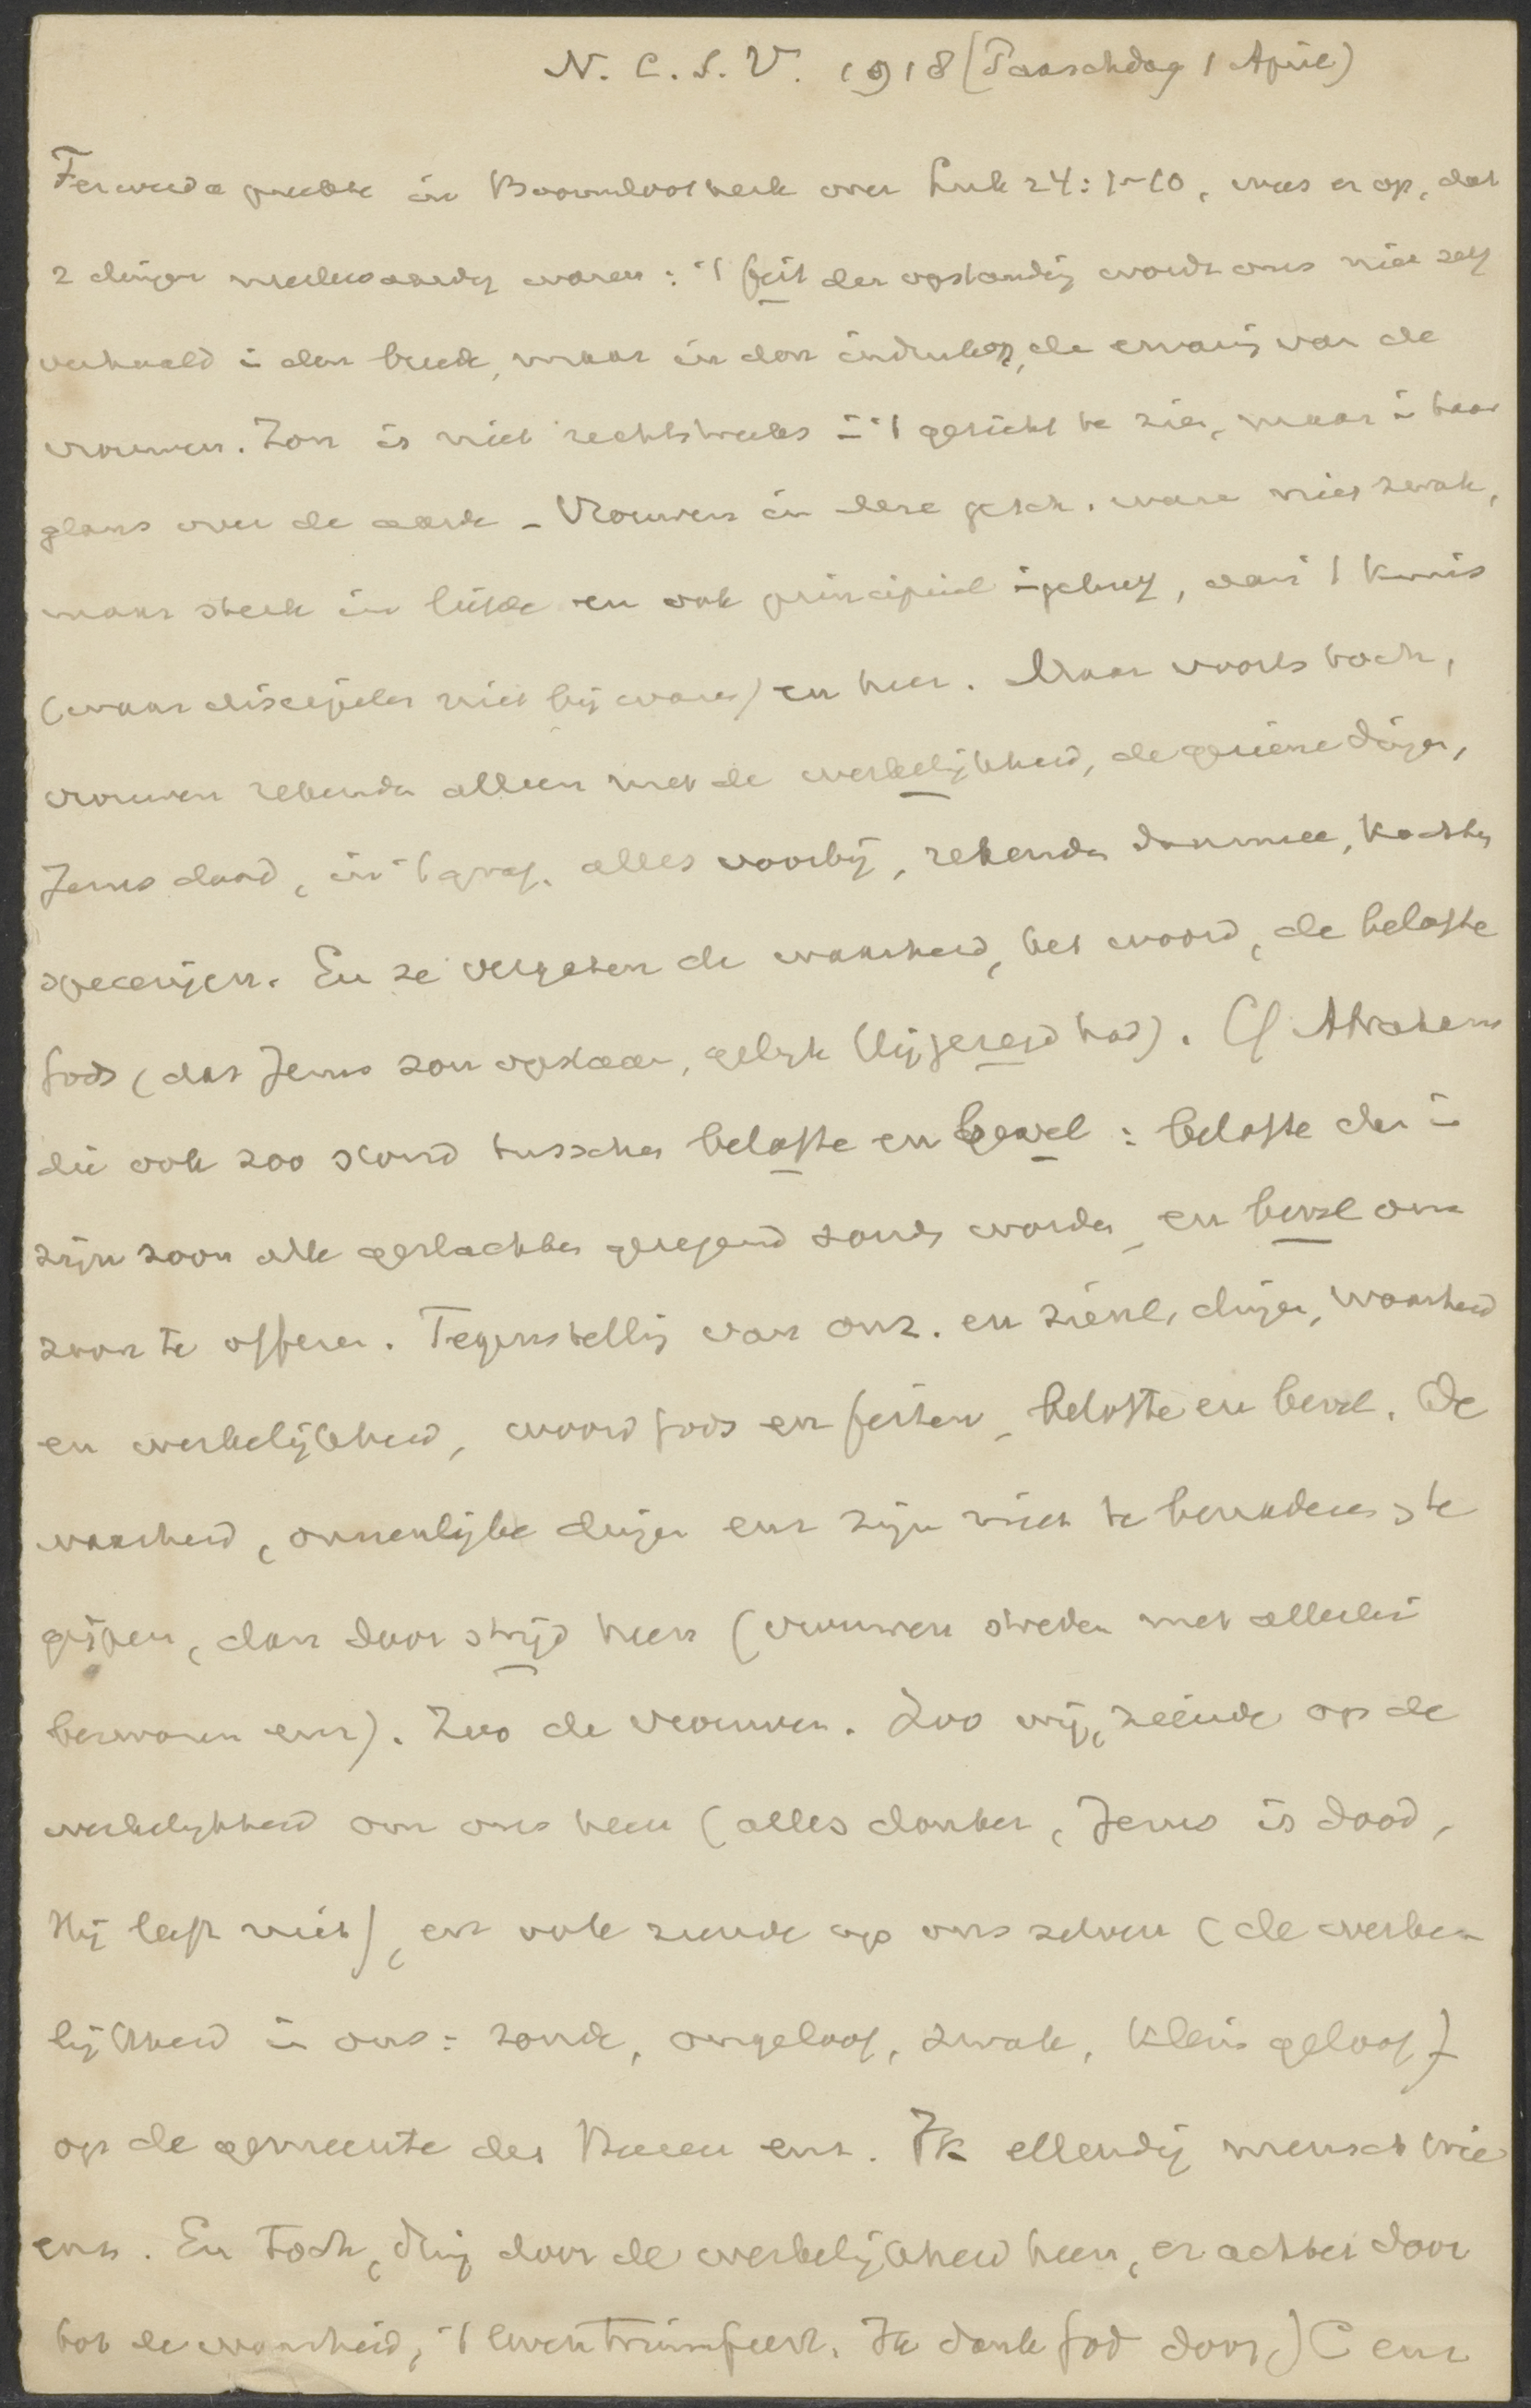 N. C. S. V. 1918 (Paaschdag 1 April)
Ferwerda preekte in Boomsloot kerk over Luk 24: 1-10, wees er op, dat
2 dingen merkwaardig waren: 't feit der opstanding wordt ons niet zelf
verhaald in den breede, maar in den indruk op, de ervaring van de
vrouwen. Zon is niet rechtstreeks in 't gezicht te zien, maar in haar
glans over de aarde - Vrouwen in deze gesch. ware niet zwak,
maar sterk in liefde en ook principieel , aan 't kruis
(waar discipelen niet bij waren) en hier. Maar voorts toch,
vrouwen rekenden alleen met de werkelijkheid, de geziene dingen,
Jezus dood, in 't graf. alles voorbij, rekenden daarmee, kochten
specerijen. En ze vergeten de waarheid, het woord, de belofte
Gods (dat Jezus zou opstaan, gelijk Hij gezegd had). Cf Abraham
die ook zoo stond tusschen belofte en bevel: belofte dat in
zijn zoon alle geslachten gezegend zouden worden en bevel om
zoon te offeren. Tegenstelling van onz. en zienl. dingen, waarheid
en werkelijkheid, woord Gods en feiten, belofte en bevel. De
waarheid, onzienlijke dingen enz zijn niet te benaderen, te
grijpen, dan door strijd heen (vrouwen streden met allerlei
bezwaren enz). Zoo de vrouwen. Zoo wij, ziende op de
werkelijkheid om ons heen (alles donker, Jezus is dood,
Hij leeft niet), en ook ziende op ons zelven (de werke-
lijkheid in ons: zonde, ongeloof, zwak, klein geloof)
op de gemeente des Heeren enz. Ik ellendig mensch wie
enz. En toch, dring door de werkelijkheid heen, er achter door
tot de waarheid, 't leven triumfeert. Ik dank God door J C enz